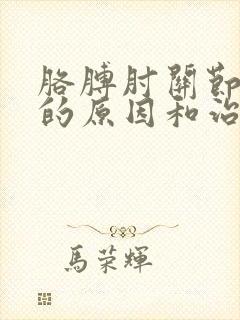 胳膊肘關節
的原因和治
馬榮輝